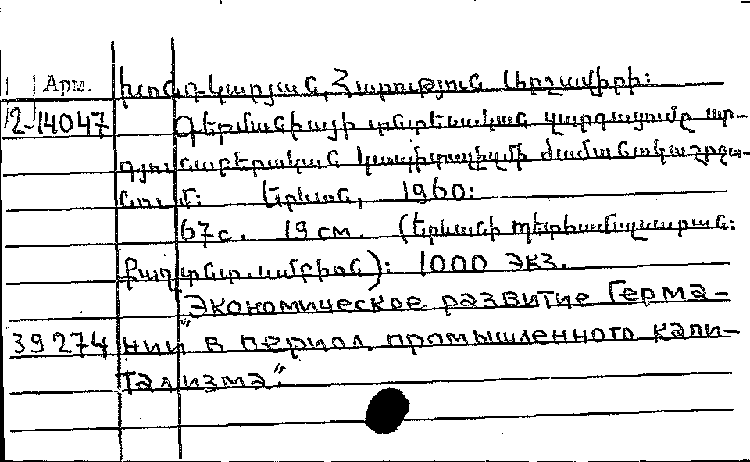 Арм. Խոնդկարյան, Հարություն Արշավիրի:
12-14047 Գերմանիայի տնտեսական զարգացումը ար-
դյունաբերական կապիտալիզմի ժամանակաշրջա-
նում: Երևան, 1960:
67 с. 19 см. (Երևանի Պետհամալսարան:
Քաղ. տնտ. ամբիոն): 1000 экз.
"Экономическое развитие Герма-
39274 нии в период промышленного капи-
тализма".